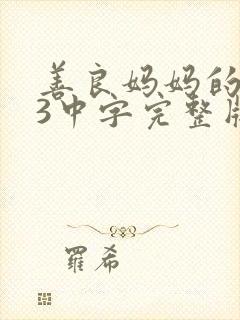 善良妈妈的
3中字完整
罗希